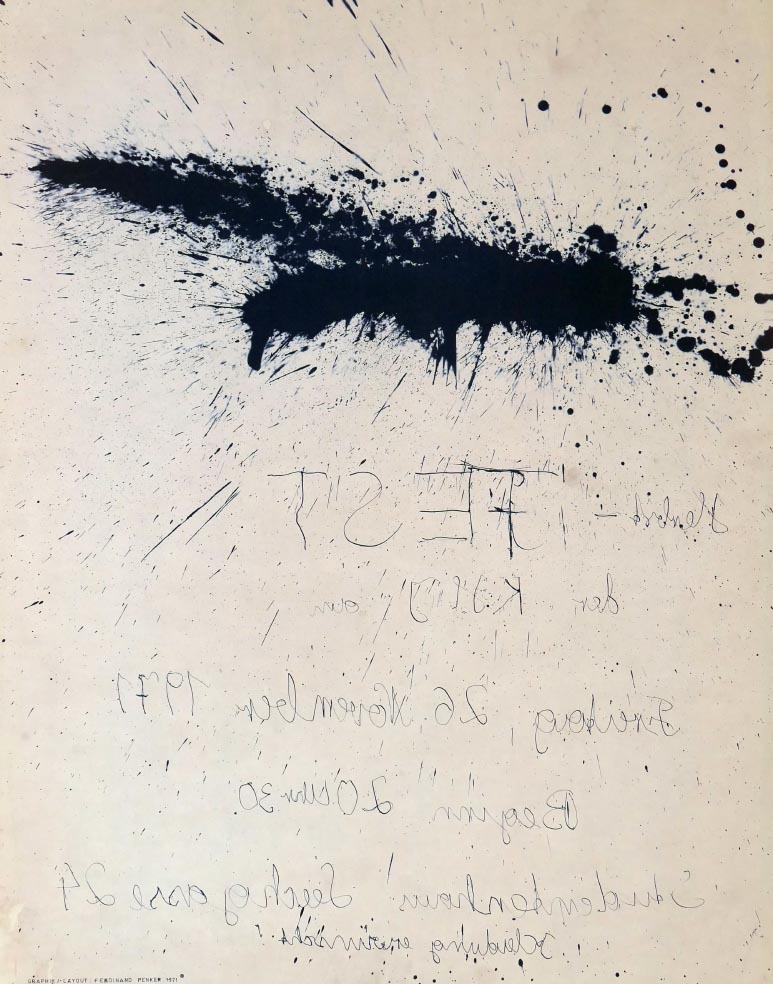 Herbst - FEST
der K.H.J am
Freitag, 26 November 1971
Beginn 20 Uhr 30
Studentenhaus Leechgasse 24
Kleidung erwünscht!
GRAPHIK/-LAYOUT: FERDINAND PENKER 1971